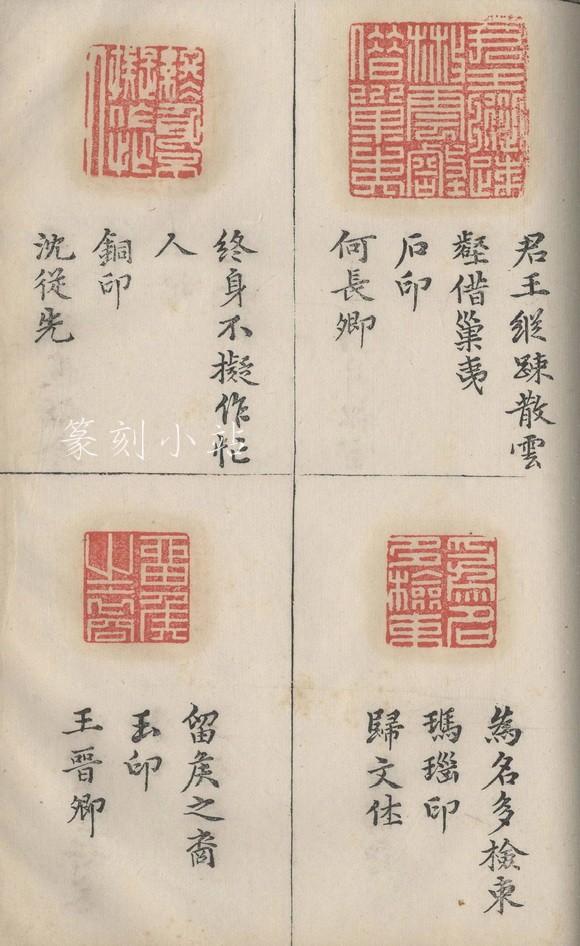 君王縱疎散雲
壑借巢夷
石印
何長卿
終身不擬作忙
人
銅印
沈從先
為名多檢束
瑪瑙印
歸文休
留矦之裔
玉印
王晉卿
篆刻小站